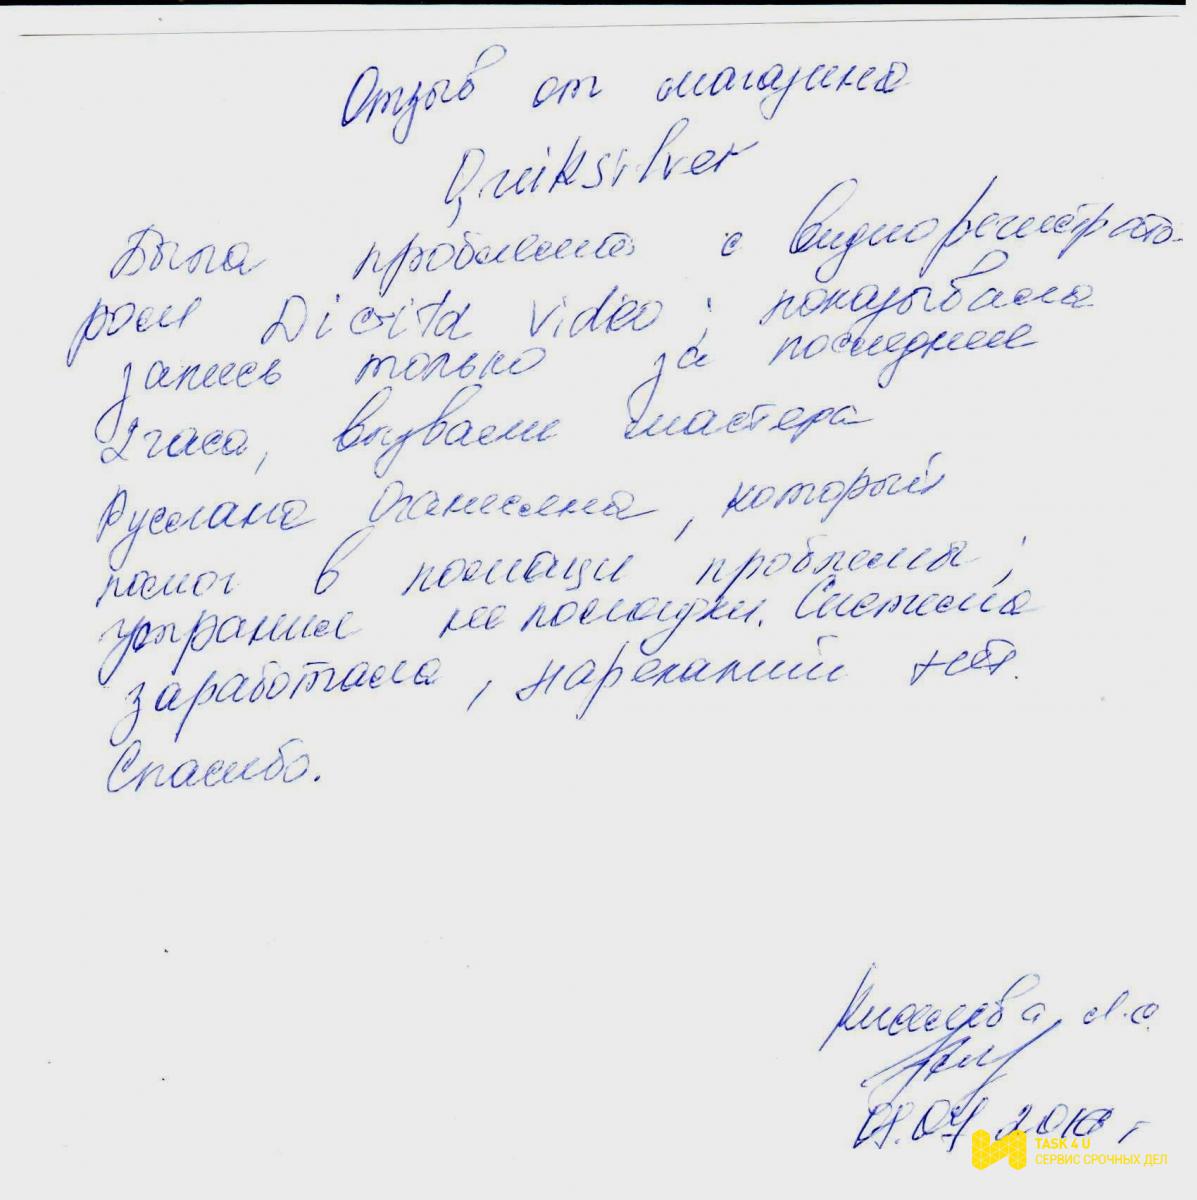 Отзыв от магазина
Quiksilver
Была проблема с видиорегистрато-
ром Digital video; показывала
запись только за последние
2 часа, вызвали мастера
Руслана Оганесяна, который
помог в помощи проблемы;
устранил не поладки. Система
заработала, нареканий нет.
Спасибо.
А.С.
2016 г.
TASK 4 U
СЕРВИС СРОЧНЫХ ДЕЛ